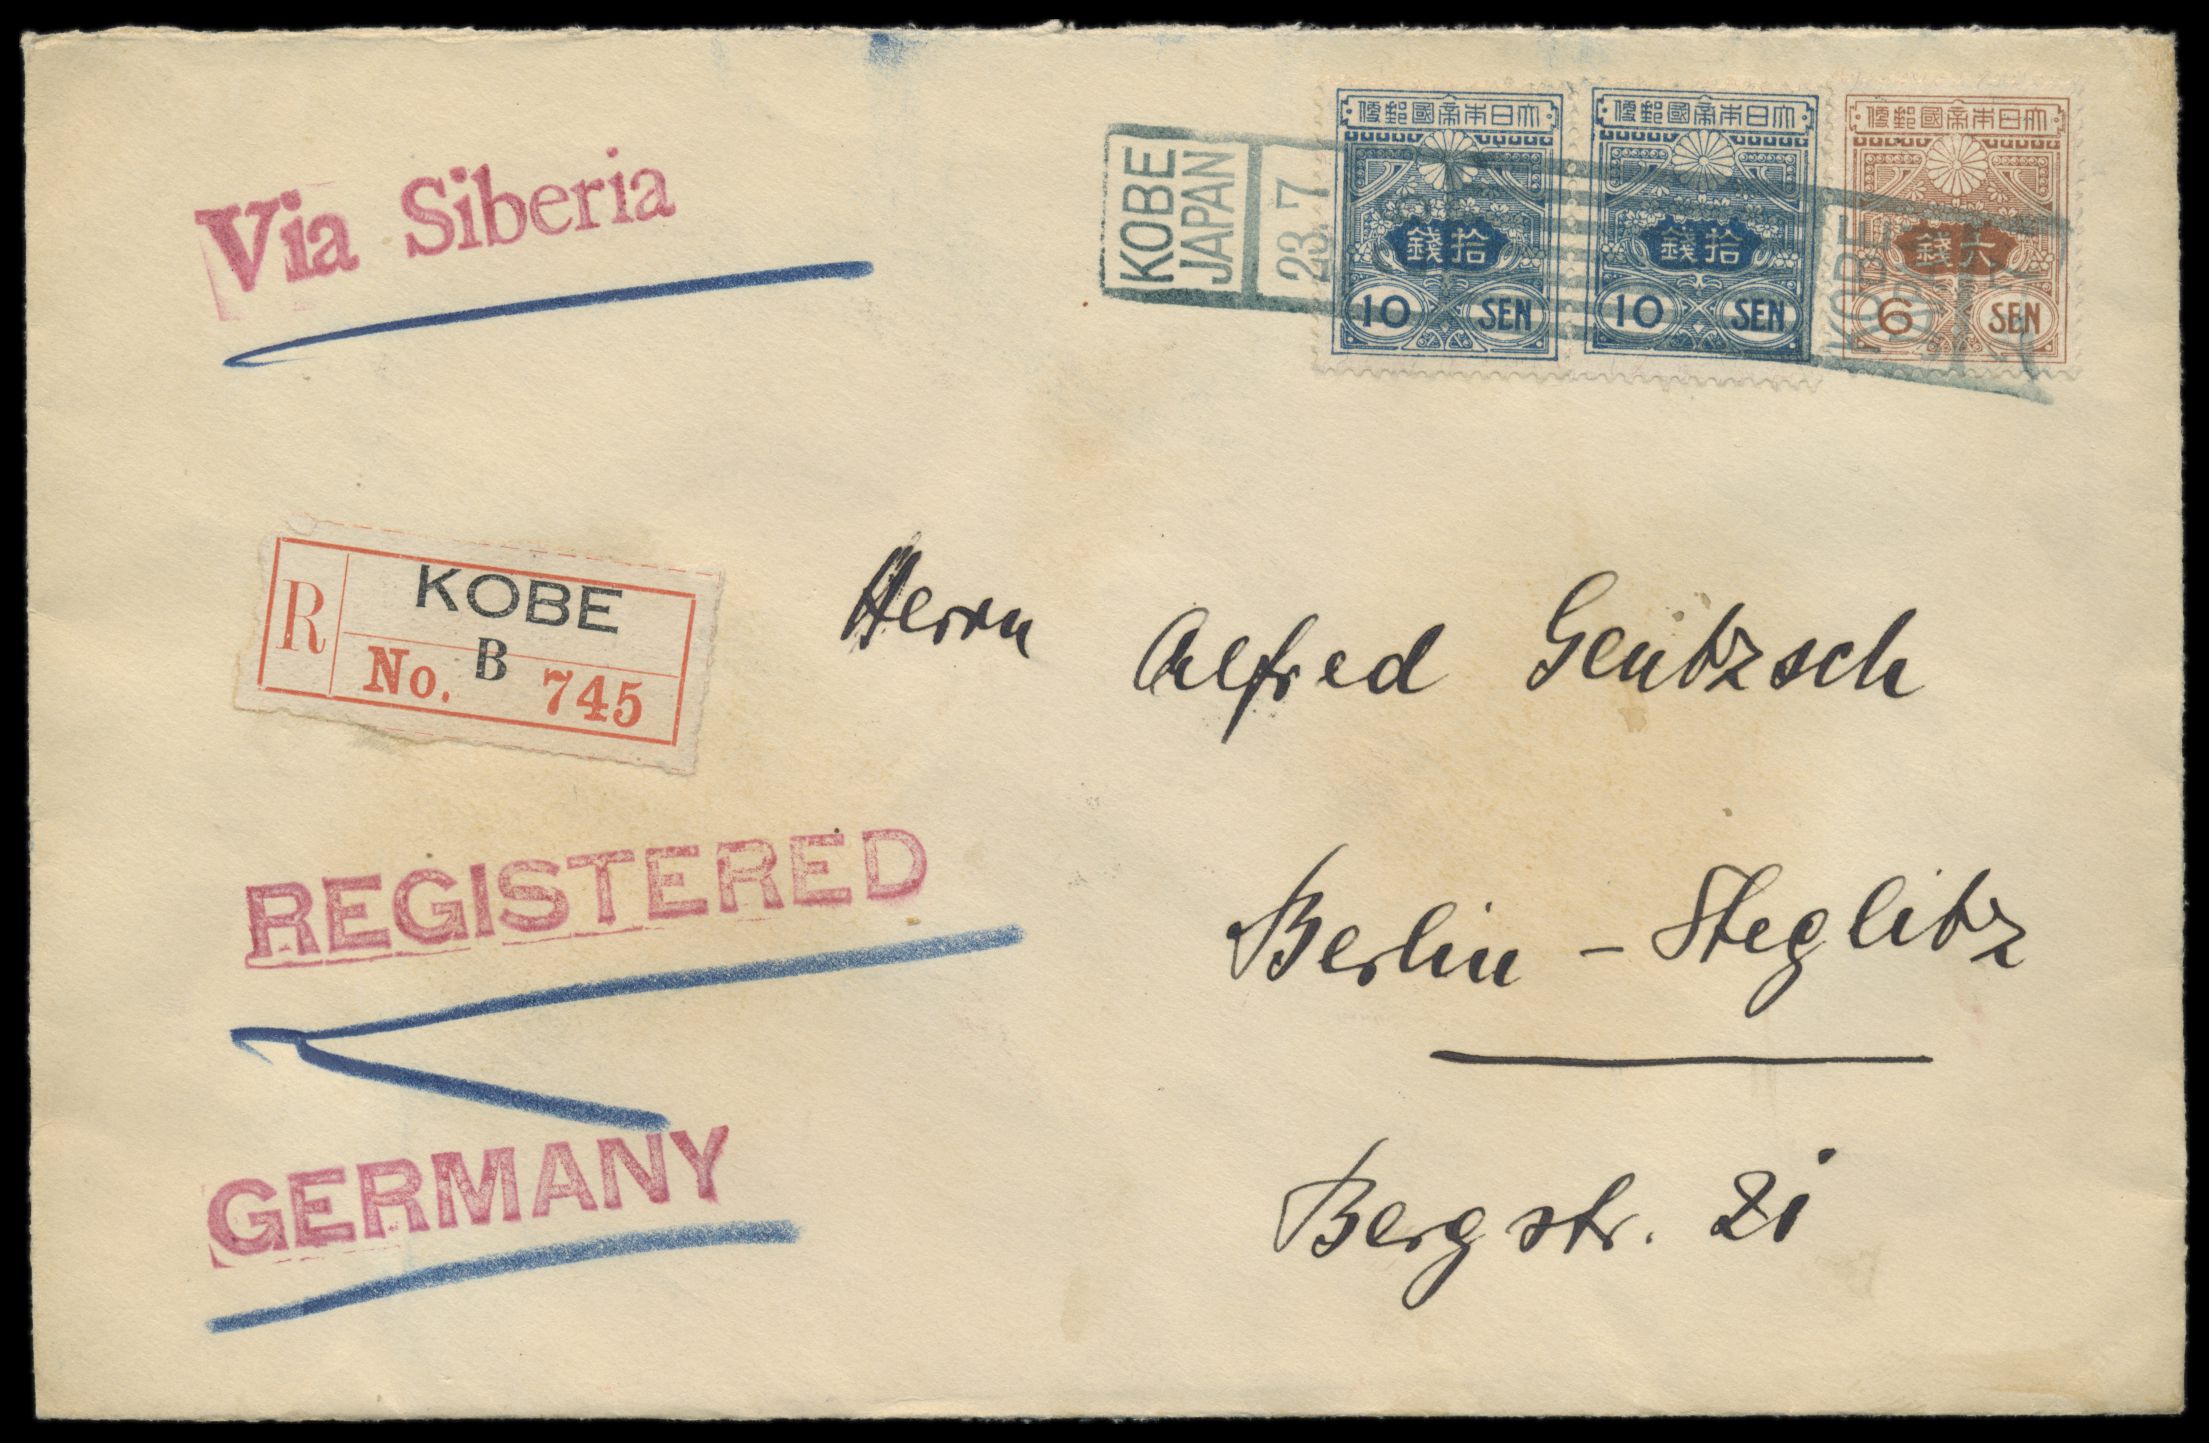 Via Siberia
KOBE
JAPAN
23. 7
大日本帝國郵便
拾錢
10 SEN
大日本帝國郵便
拾錢
10 SEN
大日本帝國郵便
六錢
6 SEN
KOBE
R
KOBE
B
No. 745
Herrn Alfred Geützsch
REGISTERED
Berlin - Steglitz
GERMANY
Bergstr. 2i